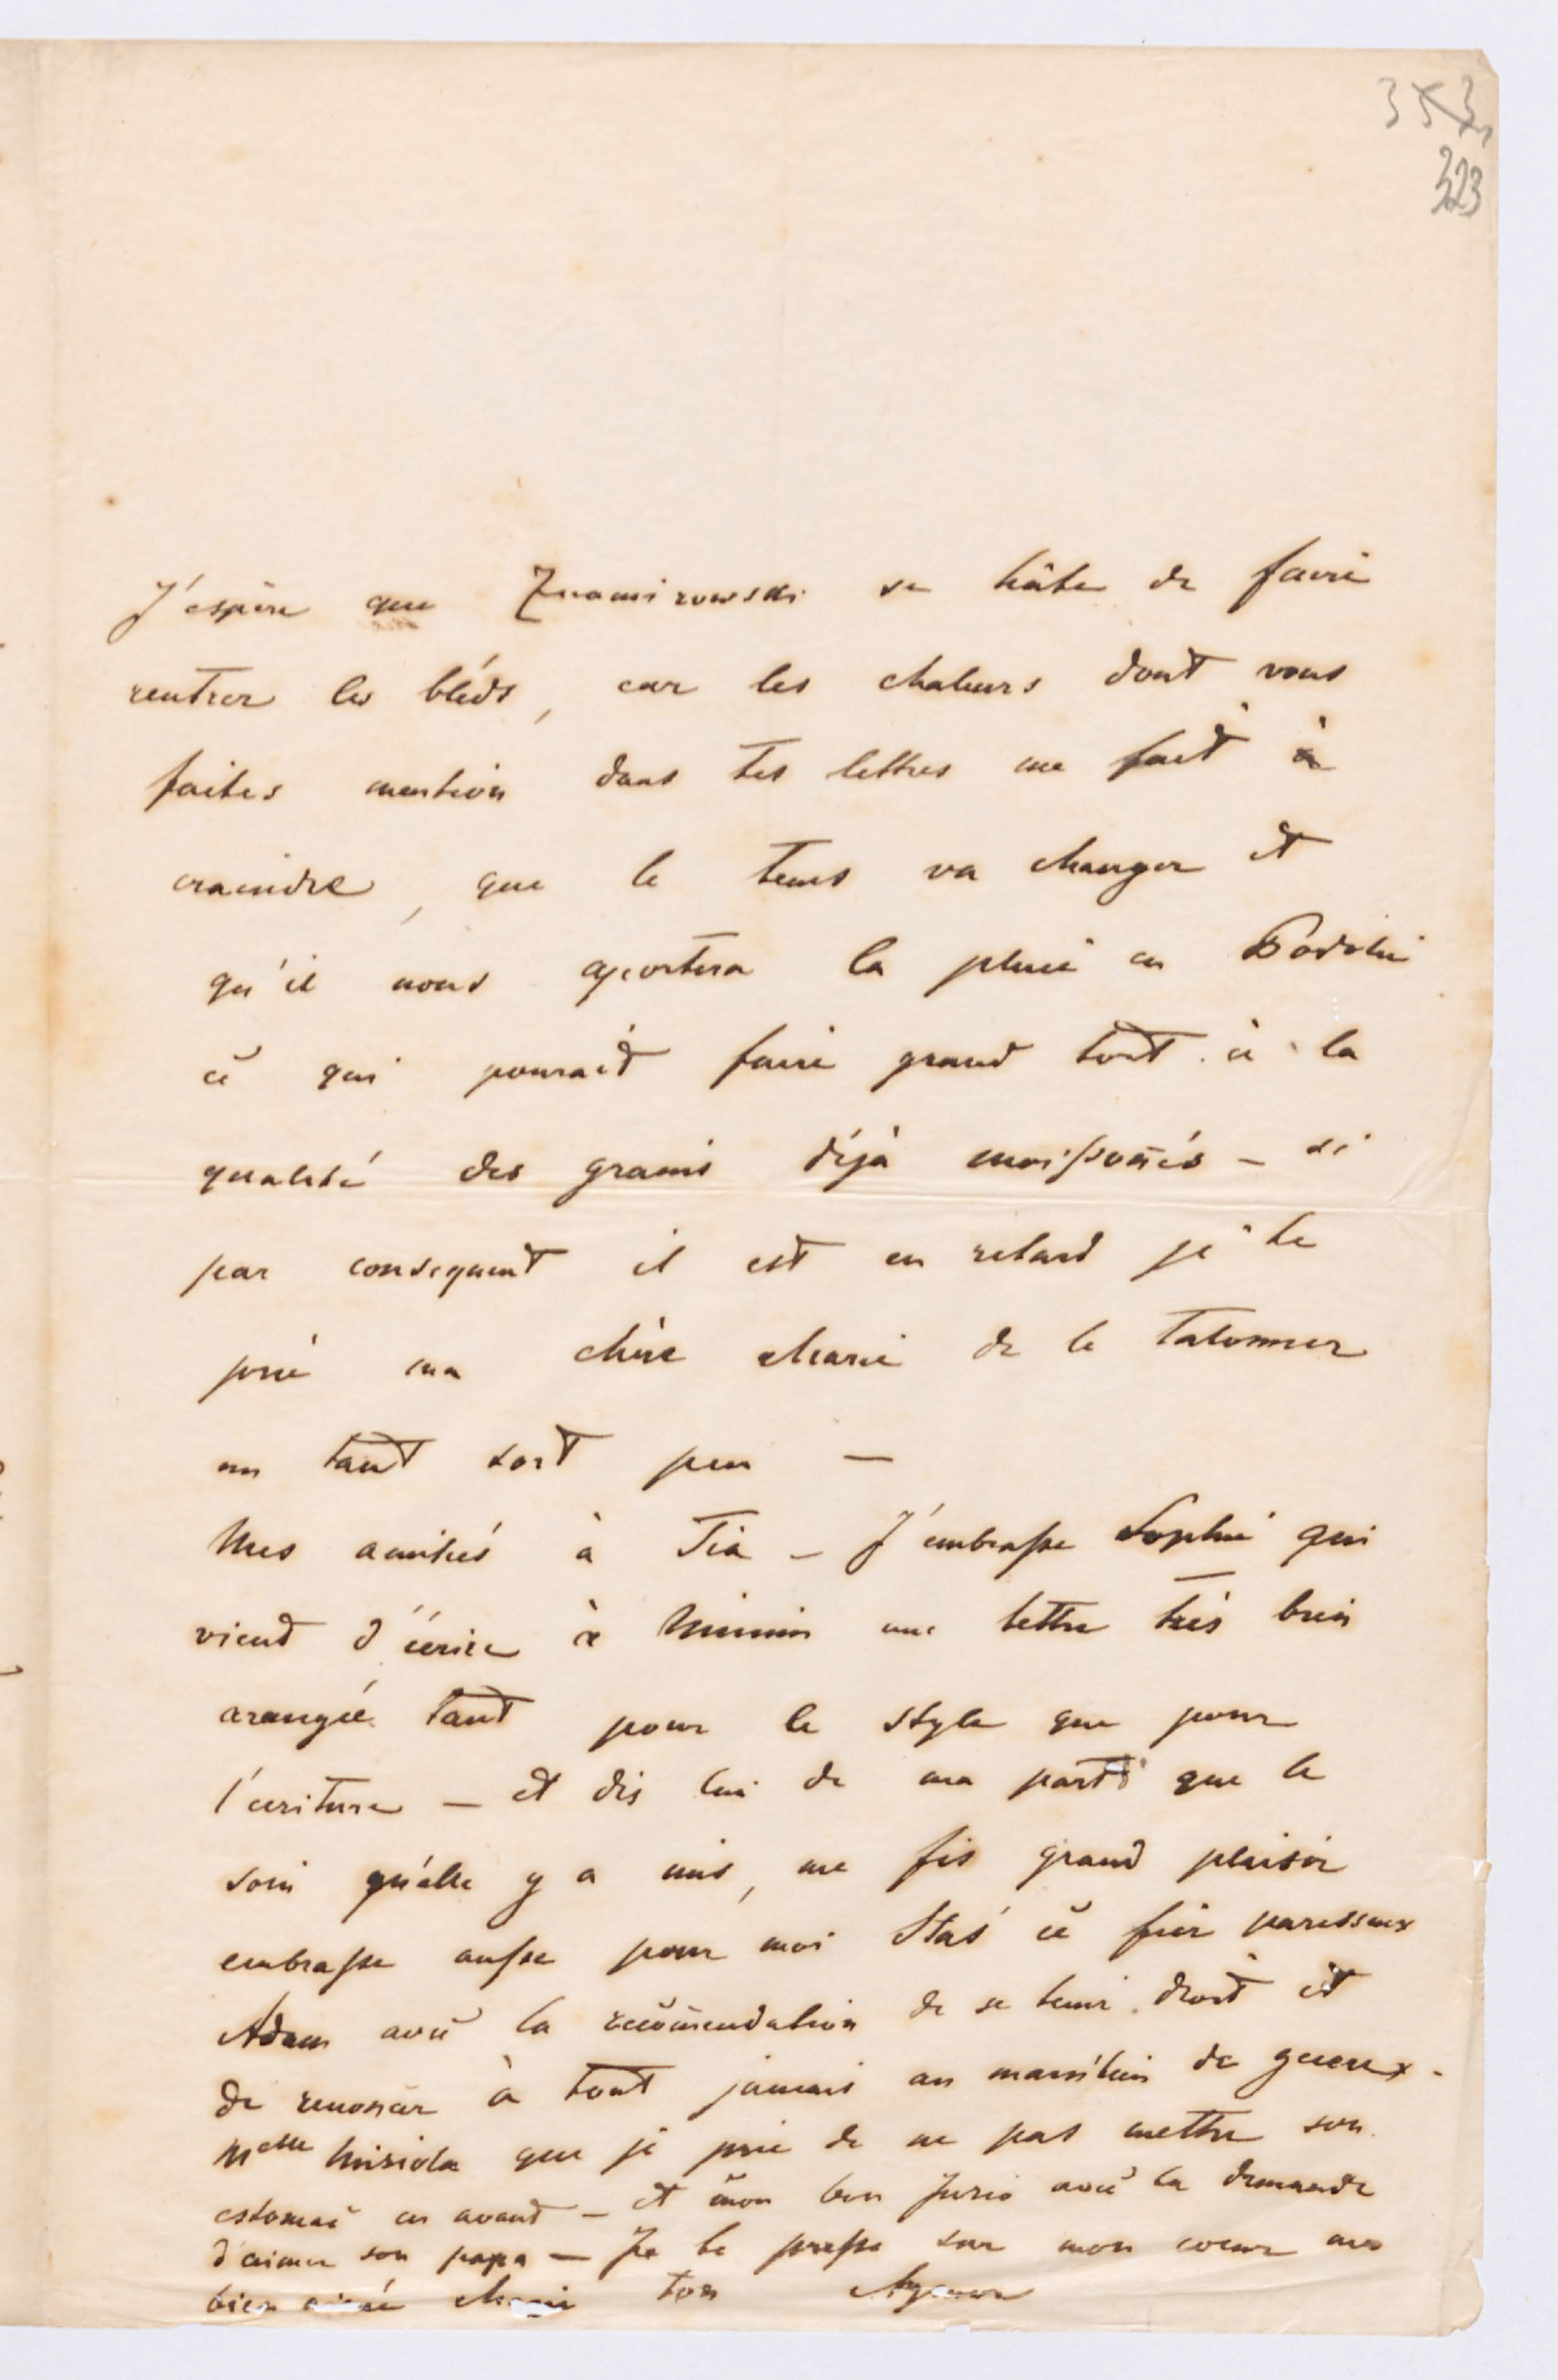 353
323
J'espère que Znamirowski se hâte de faire
rentrer les bléds, car les chaleurs dont vous
faites mention dans tes lettres me fait à
craindre, que le tems va changer et
qu'il nous aportera la pluie en Podolie
ce qui pourait faire grand tort à la
qualité des grains déjà moissonés – si
par consequent il est en retard je te
prie ma chère Marie de le talonner
un tant sort peu —
Mes amitiés à Tia – J'embrasse Sophie qui
vient d'écrire à Mimin une lettre très bien
arangée tant pour le style que pour
l'ecriture — et dis lui de ma part que le
soin qu'elle y a mis, me fis grand plaisir
embrasse ausse pour moi Staś ce fier paresseux
Adam avec la recomendation de se tenir droit et
de renoncer à tout jamais au maintien de gueux –
Melle Misiola que je prie de ne pas mettre son
estomac en avant – et mon bon Jurio avec la demande
d'aimer son papa — Je te presse sur mon coeur ma
bien aimée Marie ton Agenor